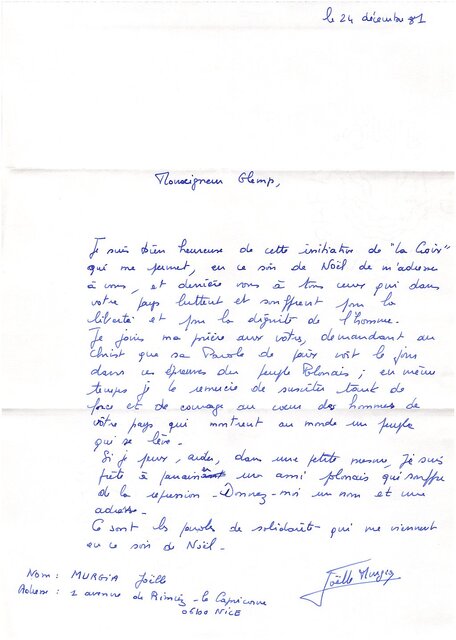 le 24 décembre 81
Monseigneur Glemp,
Je suis bien heureuse de cette initiative de "La Croix"
qui me permet, en ce soir de Noël de m'adresser
à vous, et derrière vous à tous ceux qui dans
votre pays luttent et souffrent pour la
liberté et pour la dignité de l'homme.
Je joins ma prière aux vôtres, demandant au
Christ que sa Parole de paix voit le jour
dans ces épreuves du peuple Polonais ; en même
temps je le remercie de susciter tant de
force et de courage au coeur des hommes de
votre pays qui montrent au monde un peuple
qui se lève.
Si je peux, aider, dans une petite mesure, je suis
prête à parrainer un ami polonais qui souffre
de la répression - Donnez-moi un nom et une
adresse.
Ce sont les paroles de solidarité qui me viennent
en ce soir de Noël.
Nom : MURGIA Joëlle
Adresse : 1 avenue de Rimiez - le Capricorne
06100 NICE
Joëlle Murgia